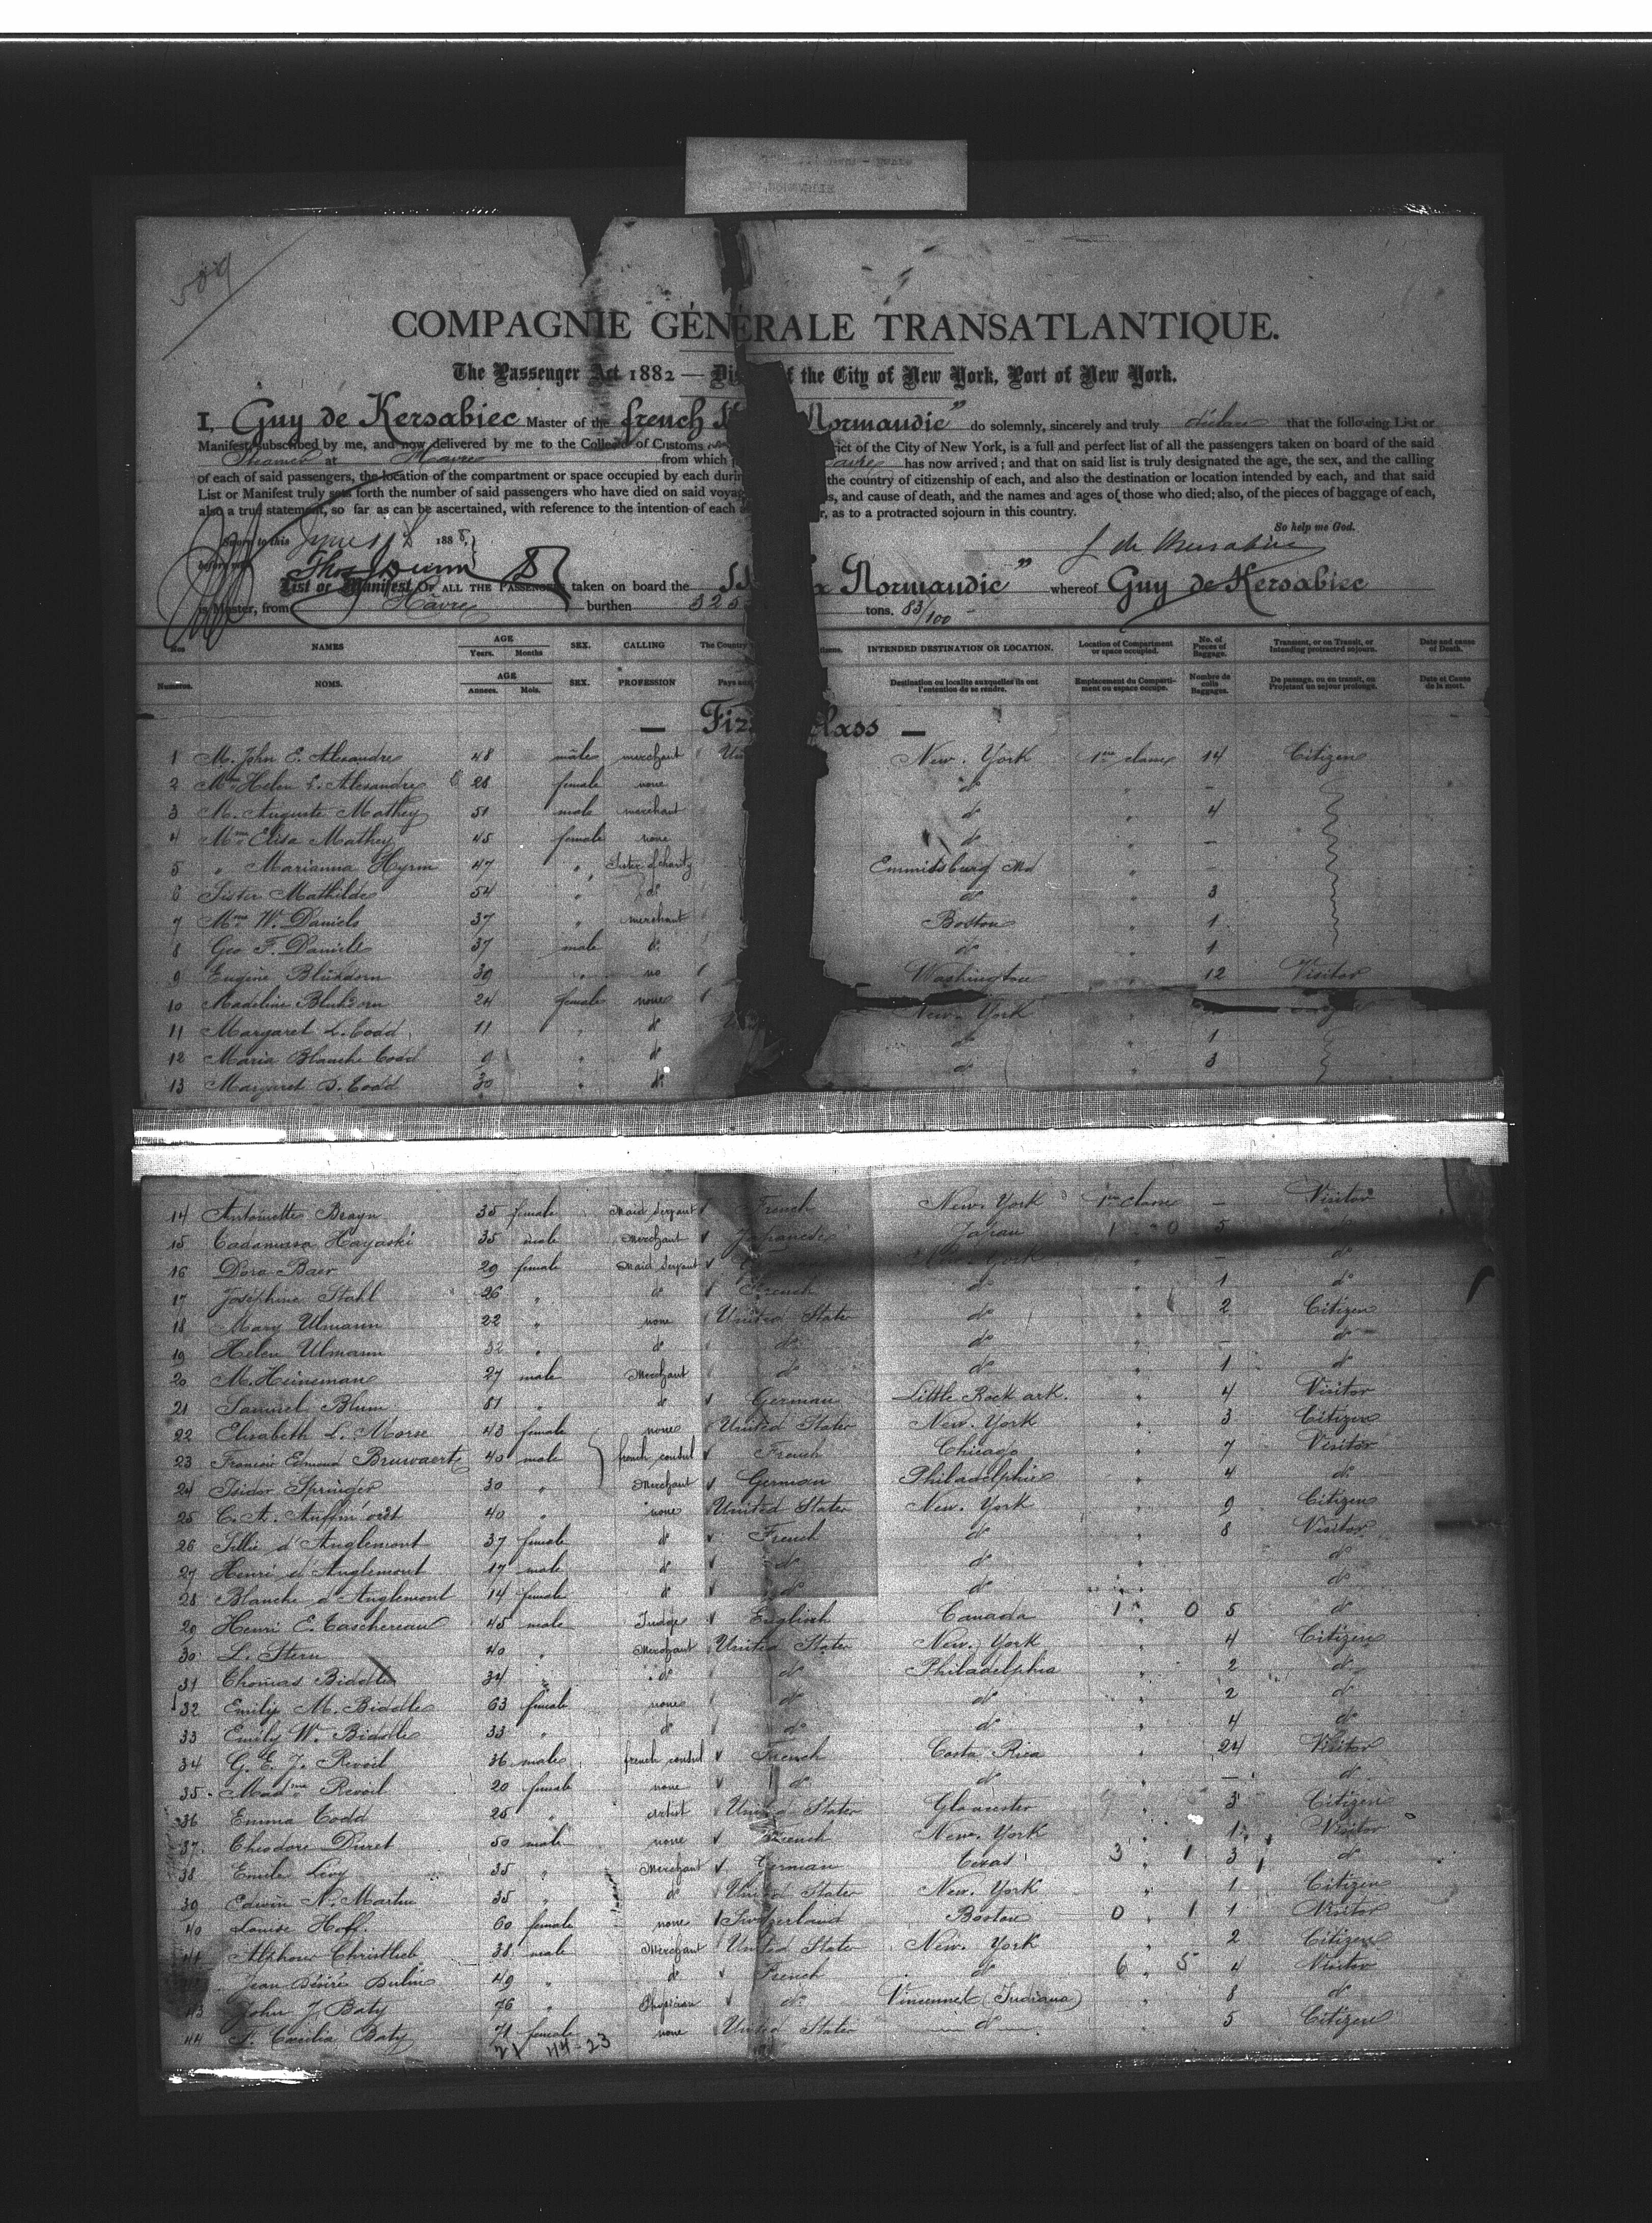 589
COMPAGNIE GÉNÉRALE TRANSATLANTIQUE.
The Passenger Act 1882 — Dis of the City of New York, Port of New York.
I, Guy de Kersabiec Master of the french Normandie" do solemnly, sincerely and truly déclare that the following List or
Manifest, subscribed by me, and now delivered by me to the Collector of Customs rict of the City of New York, is a full and perfect list of all the passengers taken on board of the said
Steamer at Havre from which has now arrived; and that on said list is truly designated the age, the sex, and the calling
of each of said passengers, the location of the compartment or space occupied by each durin the country of citizenship of each, and also the destination or location intended by each, and that said
List or Manifest truly sets forth the number of said passengers who have died on said voyag s, and cause of death, and the names and ages of those who died; also, of the pieces of baggage of each,
also a true statement, so far as can be ascertained, with reference to the intention of each r, as to a protracted sojourn in this country.
So help me God.
Sworn to this June 1888,
before me Thos Dunn
List or Manifest OF ALL THE PASSENGERS taken on board the Normandie" whereof Guy de Kersabiec
is Master, from Havre burthen 325 tons. 83/100
Nos NAMES AGE Years. Months SEX. CALLING The Country INTENDED DESTINATION OR LOCATION. Location of Compartment or space occupied. No. of Pieces of Baggage. Transient, or on Transit, or Intending protracted sojourn. Date and cause of Death.
Numeros. NOMS. AGE Annees. Mois. SEX. PROFESSION Pays Destination ou localite auxquelles ils ont l'entention de se rendre. Emplacement du Comparti- ment ou espace occupe. Nombre de colis Baggages. De passage, ou en transit, ou Projetant un sejour prolonge. Date et Cause de la mort.
— First Class —
1 M. John E. Alexandre 48 male merchant Un New. York 1ere classe 14 Citizen
2 Mme Helen L. Alexandre 28 female none do " -
3 M. Auguste Mathey 51 male merchant do " 4
4 Mme Elisa Mathey 45 female none do " -
5 " Marianna Hyrm 47 " Sister of charity Emmitsburg Md " -
6 Sister Mathilde 54 " do do " 3
7 Mme W. Daniels 37 " merchant Boston " 1
8 Geo F. Daniels 37 male do do " 1
9 Eugène Blüxdorn 39 " no Washington " 12 Visitor
10 Madeline Bluhdorn 24 female none New. York
11 Margaret L. Codd 11 " do do " 1
12 Maria Blanche Codd 9 " do do " 3
13 Margaret D. Codd 30 " do
14 Antoinette Brayn 35 female Maid Servant French New. York 1ere classe - Visitor
15 Tadamasa Hayashi 35 male Merchant Japanese Japan 1 " 0 5
16 Dora Baer 29 female Maid Servant New York " - do
17 Joséphine Stahl 26 " do French do " 1 do
18 Mary Ulmann 22 " none United States do " 2 Citizen
19 Helen Ulmann 32 " do do do " - do
20 M. Heineman 27 male Merchant do do " 1 do
21 Samuel Blum 51 " do German Little Rock ark. " 4 Visitor
22 Elisabeth L. Morse 43 female none United States New. York " 3 Citizen
23 Francois Edmond Bruwaert 40 male french consul French Chicago " 7 Visitor
24 Isidor Springer 30 " Merchant German Philadelphie " 4 do
25 C. A. Auffm'ordt 40 " none United States New. York " 9 Citizen
26 Lillie d'Anglemont 37 female do French do " 8 Visitor
27 Henri d'Anglemont 17 male do do do do
28 Blanche d'Anglemont 14 female do do do do
29 Henri E. Taschereau 45 male Judge English Canada 1 " 0 5 do
30 L. Stern 40 " Merchant United States New. York " 4 Citizen
31 Thomas Biddle 34 " do do Philadelphia " 2 do
32 Emily M. Biddle 63 female none do do " 2 do
33 Emily W. Biddle 33 " do do do " 4 do
34 G. E. J. Revoil 36 male french consul French Costa Rica " 24 Visitor
35 Madme Revoil 20 female none do do " - do
36 Emma Todd 25 " Artist United States Gloucester " 3 Citizen
37 Theodore Duret 50 male none French New. York " 1 Visitor
38 Emile Levy 35 " Merchant German Texas 3 " 1 3 do
39 Edwin N. Martin 35 " do United States New. York " 1 Citizen
40 Louise Hoff. 60 female none Switzerland Boston 0 " 1 1 Visitor
41 Alphonse Christlieb 38 male Merchant United States New. York " 2 Citizen
Jean Désiré Dulin 49 " do French do 6 " 5 4 Visitor
43 John J. Baty 76 " Physician do Vincennes (Indiana) " 8 do
44 A. Cecilia Baty 71 female none United States do " 5 Citizen
21 44-23